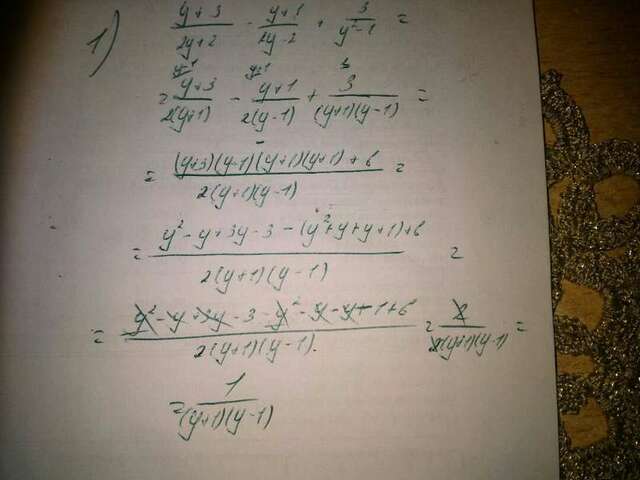 1) (y+3)/(2y+2) - (y+1)/(2y-2) + 3/(y²-1) =
= (y+3)/(2(y+1)) - (y+1)/(2(y-1)) + 3/((y+1)(y-1)) =
= ((y+3)(y-1)-(y+1)(y+1)+6)/(2(y+1)(y-1)) =
= (y²-y+3y-3-(y²+y+y+1)+6)/(2(y+1)(y-1)) =
= (y²-y+3y-3-y²-y-y+1+6)/(2(y+1)(y-1)) = 2/(2(y+1)(y-1)) =
= 1/((y+1)(y-1))